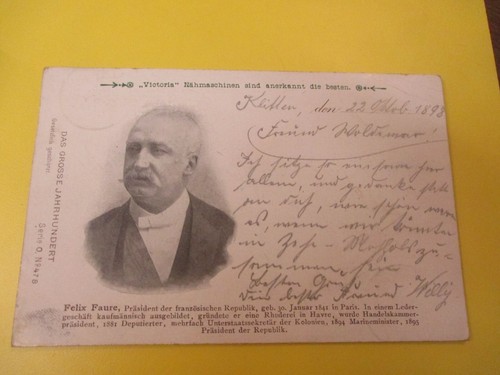 „Victoria“ Nähmaschinen sind anerkannt die besten.
DAS GROSSE JAHRHUNDERT
Gesetzlich geschützt.
Serie O № 478
den 22 Oktob. 1898
Freund Woldemar!
Ich sitze so
und gedenke
an dich, wie schön wäre
es, wenn wir könnten
im
sammen sein.
besten Gruß
dein bester Freund Willy
Felix Faure, Präsident der französischen Republik, geb. 30. Januar 1841 in Paris. In einem Leder-
geschäft kaufmännisch ausgebildet, gründete er eine Rhederei in Havre, wurde Handelskammer-
präsident, 1881 Deputierter, mehrfach Unterstaatssekretär der Kolonien, 1894 Marineminister, 1895
Präsident der Republik.